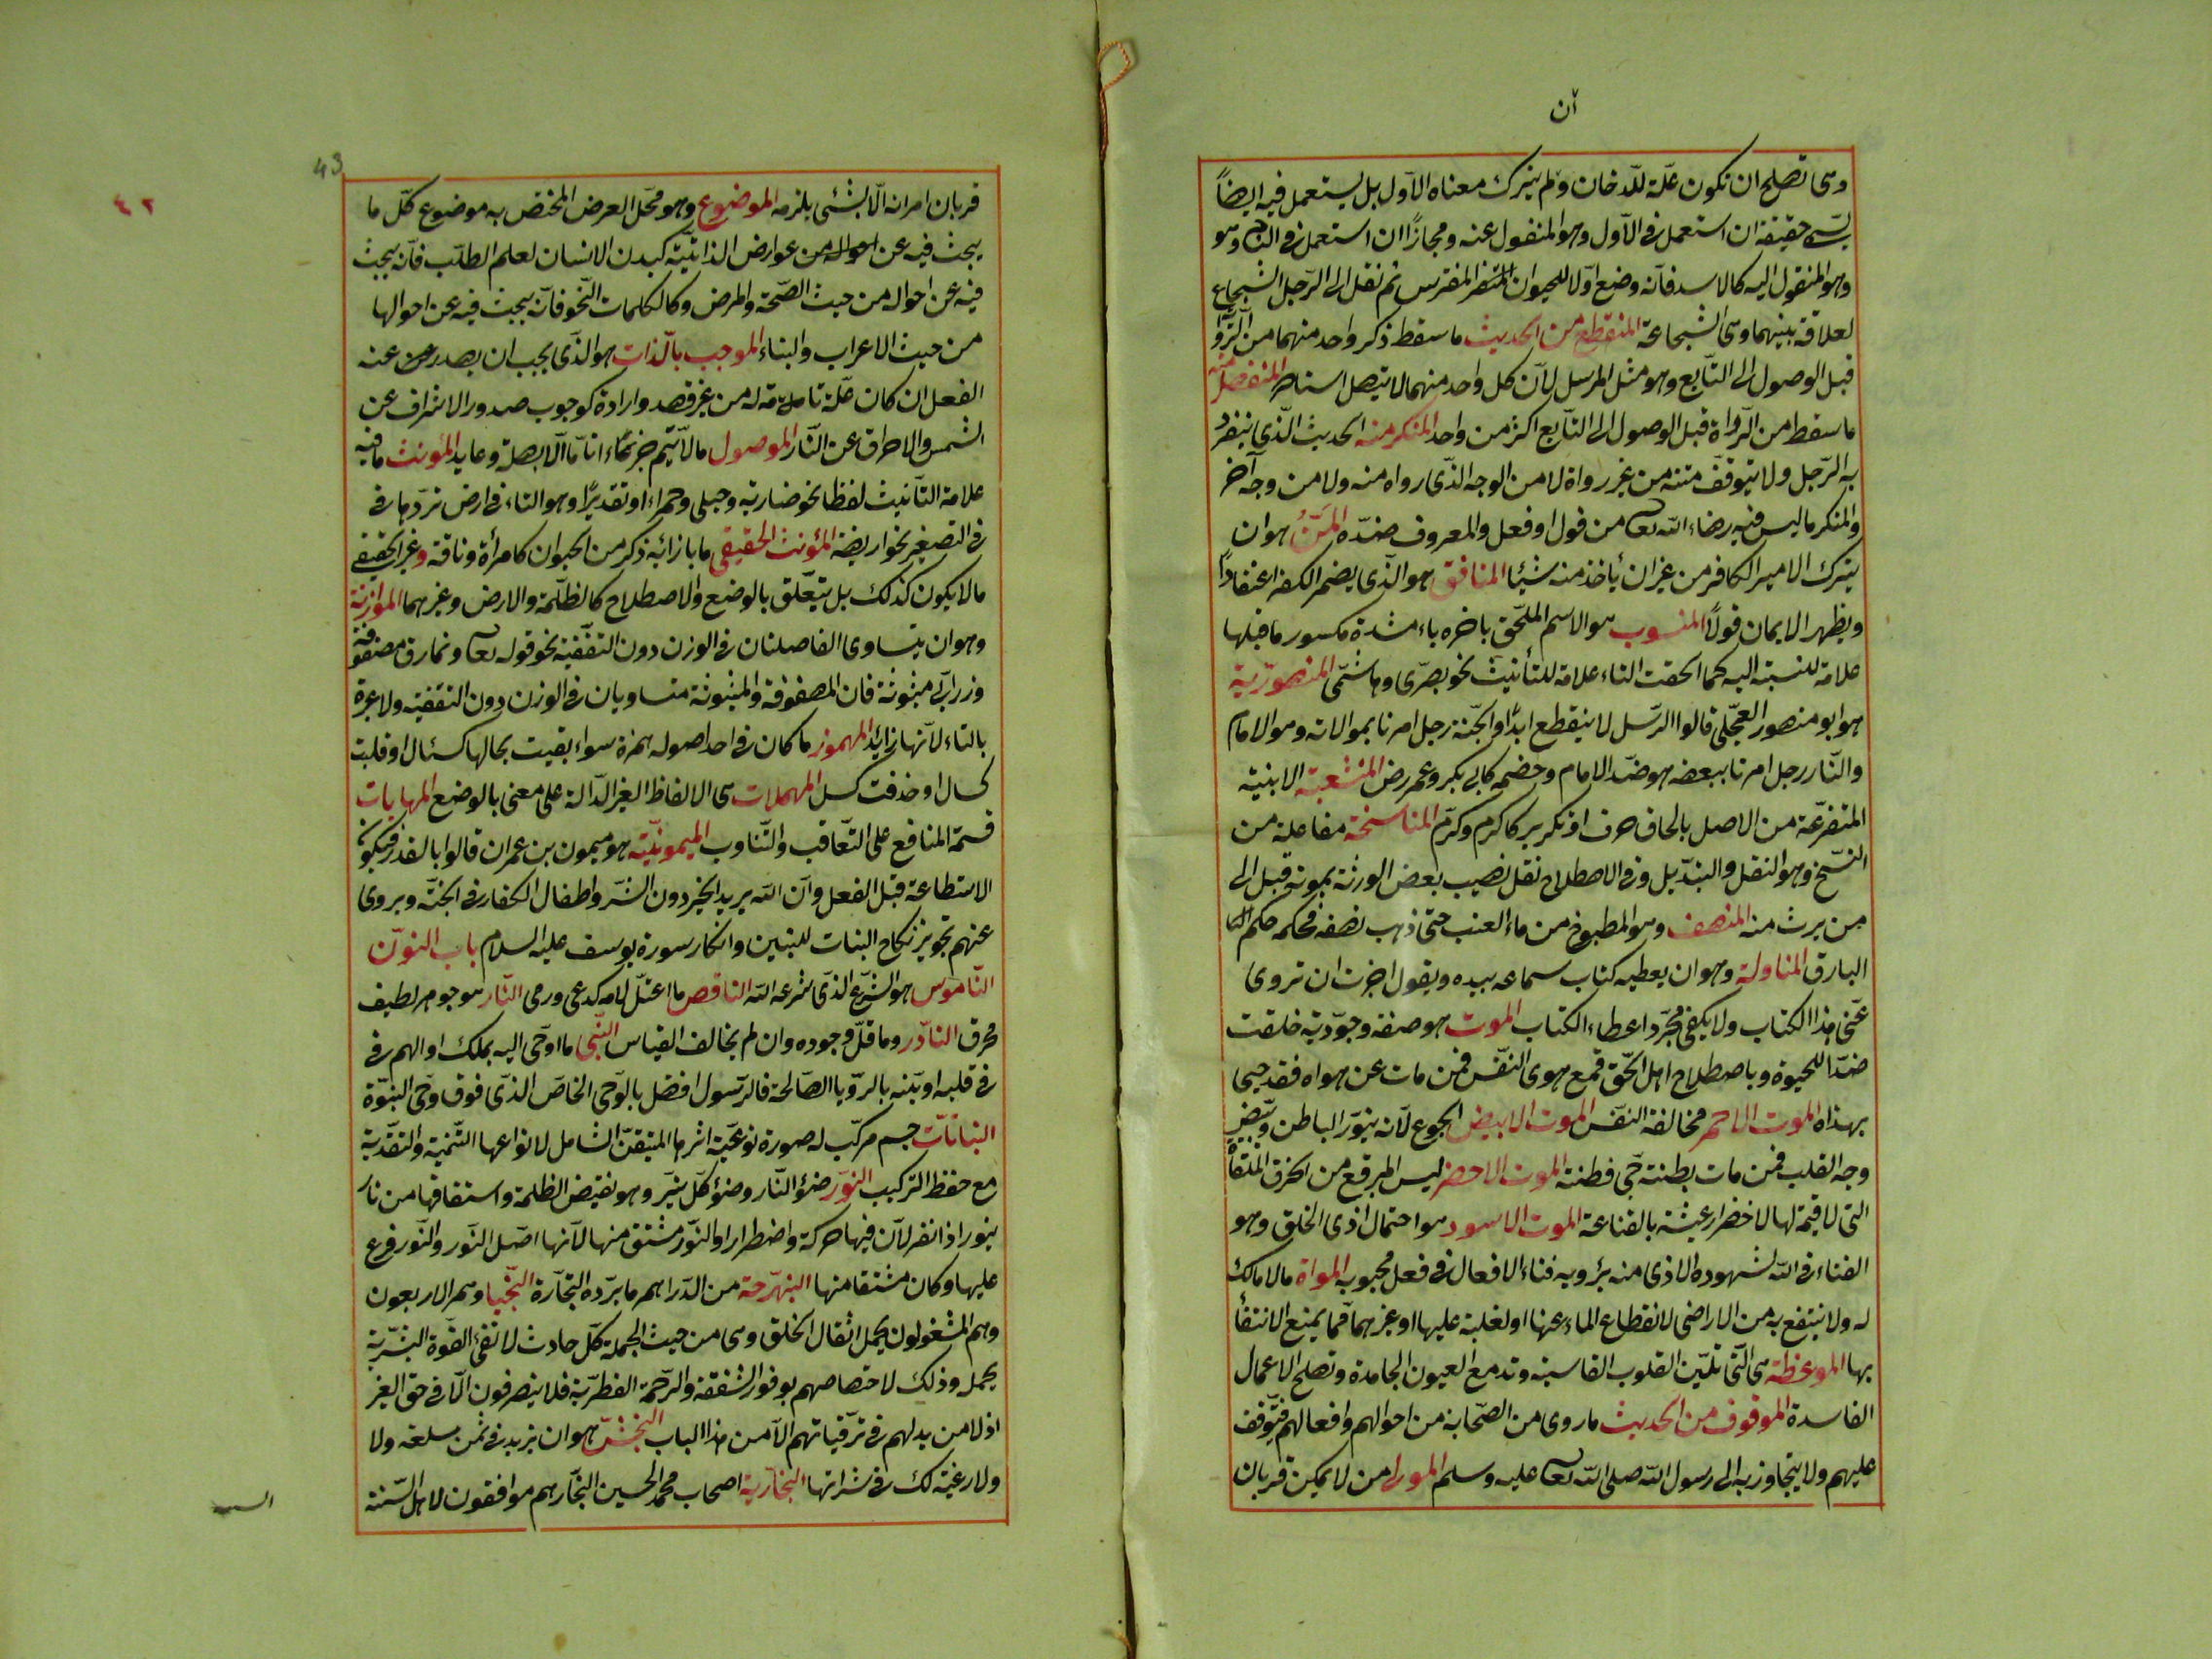 آن
وهى تصلح ان تكون علة للدخان ولم يترك معناه الاول بل يستعمل فيه ايضاً
يسمى حقيقة ان استعمل فى الاول وهو المنقول عنه ومجازاً ان استعمل فى الثانى وهو
وهو المنقول اليه كالاسد فانه وضع اولا للحيوان المفترس ثم نقل الى الرجل الشجاع
لعلاقة بينهما وهى الشجاعة المنقطع من الحديث ما سقط ذكر واحد منهما من الروا
قبل الوصول الى التابع وهو مثل المرسل لان كل واحد منهما لا يتصل اسناده المنفصل منه
ما سقط من الرواة قبل الوصول الى التابع اكثر من واحد المنكر منه الحديث الذى ينفرد
به الرجل ولا يتوقف متنه من غير رواة لا من الوجه الذى رواه منه ولا من وجه آخر
والمنكر ما ليس فيه رضاء الله تعا من قول او فعل والمعروف ضده المَنّ هو ان
يترك الامير الكافر من غير ان يأخذ منه شيئا المنافق هو الذى يضمر الكفر اعتقاداً
ويظهر الايمان قولاً المنسوب هو الاسم الملحق باخره ياء مشدة مكسور ما قبلها
علامة للنسبة اليه كما الحقت التاء علامة للتأنيث نحو بصرى وهاشمى المنصورية
هو ابو منصور العجلى قالوا الرسل لا ينقطع ابداً والجنة رجل امرنا بموالاته وهو الامام
والنار رجل امرنا ببعضه هو ضد الامام وخصمه كابى بكر وعمر رض المنشعبة الابنية
المتفرعة من الاصل بالحاق حرف او تكرير كاكرم وكرّم المناسخة مفاعلة من
النسخ وهو النقل والتبديل وفى الاصطلاح نقل نصيب بعض الورثة بموته قبل الى
من يرث منه المنصف وهو المطبوخ من ماء العنب حتى ذهب نصفه فحكمه حكم
البارق المناولة وهو ان يعطيه كتاب سماعه بيده ويقول اجزت ان تروى
عنى هذا الكتاب ولا يكفى مجرد اعطاء الكتاب الموت هو صفة وجودية خلقت
ضدا للحيوة وباصطلاح اهل الحق قمع هوى النفس فمن مات عن هواه فقد حيى
بهذاه الموت الاحمر مخالفة النفس الموت الابيض الجوع لانه ينور الباطن ويبيض
وجه القلب فمن مات بطنته حى فطنته الموت الاخضر لبس المرقع من الخرق الملقاة
التى لا قيمة لها لاخضرار عيشه بالقناعة الموت الاسود هو احتمال اذى الخلق وهو
الفناء فى الله لشهوده الاذى منه برؤية فناء الافعال فى فعل محبوبه المواة ما لا مالك
له ولا ينتفع به من الاراضى لانقطاع الماء عنها او لغلبة عليها او غيرهما مما يمنع الانتفا
بها الموعظة هى التى تلين القلوب القاسية وتدمع العيون الجامدة وتصلح الاعمال
الفاسدة الموقوف من الحديث ما روى من الصحابة من احوالهم وافعالهم فيتوقف
عليهم ولا يتجاوز به الى رسول الله صلى الله تعا عليه وسلم المولى من لا يمكن قربان
43
٤٢
قربان امرانه الا بشئى يلزمه الموضوع وهو محل العرض المختص به موضوع كل ما
يبحث فيه عن احواله من عوارض الذاتية كبدن الانسان لعلم الطب فانه يبحث
فيه عن احواله من حيث الصحة والمرض وكالكلمات النحو فانه يبحث فيه عن احوالها
من حيث الاعراب والبناء الموجب بالذات هو الذى يجب ان يصدر عن عنه
الفعل ان كان علة تامة له من غير قصد وارادة كوجوب صدور الاشراف عن
الشمس والاحراق عن النار الموصول ما لا يتم جزءًا تاما الا بصلة وعايد المؤنث ما فيه
علامة التأنيث لفظا نحو ضاربة وحبلى وحمراء او تقديرًا وهو التاء فى ارض تردها فى
فى التصغير نحو اريضة المؤنث الحقيقى ما بازائه ذكر من الحيوان كامرأة وناقة وغير الحقيقى
ما لا يكون كذلك بل يتعلق بالوضع والاصطلاح كالظلمة والارض وغيرهما الموازنة
وهو ان يتساوى الفاصلتان فى الوزن دون التقفية نحو قوله تعا ونمارق مصفوفة
وزرابى مبثوثة فان المصفوفة والمبثوثة متساويان فى الوزن دون التقفية ولا عبرة
بالتاء لانها زايد المهموز ما كان فى احد اصوله همزة سواء بقيت بحالها كسئال او قلبت
كسال او حذفت كسل المهملات هى الالفاظ الغير الدالة على معنى بالوضع المهايات
قسمة المنافع على التعاقب والتناوب الميمونية هو ميمون بن عمران قالوا بالقدر فيكون
الاستطاعة قبل الفعل وان الله يريد الخير دون الشر واطفال الكفار فى الجنة ويروى
عنهم تجويز نكاح البنات للبنين وانكار سورة يوسف عليه السلام باب النون
الناموس هو الشرع الذى شرعه الله الناقص ما اعتل لامه كدعى ورمى النار هو جوهر لطيف
محرق النادر وما قل وجوده وان لم يخالف القياس النبى ما اوحى اليه بملك او الهم فى
فى قلبه او بنه بالرؤيا الصالحة فالرسول افضل بالوحى الخاص الذى فوق وحى النبوة
النباتات جسم مركب له صورة نوعية اثرها المتيقن الشامل لانواعها التنمية والتغذية
مع حفظ التركيب النور ضوء النار وضوء كل نير وهو نقيض الظلمة واستقاقها من نار
ينور اذا نفر لان فيها حركة واضطرارا والنور مشتق منها لانها اصل النور والنور فرع
عليها وكان مشتقا منها النبهرجة من الدراهم ما يرده التجارة النجبا وهم الاربعون
وهم المشغولون بحمل اثقال الخلق وهى من حيث الجملة كل حادث لا تفى القوة البشرية
بحمله وذلك لاختصاصهم بوفور الشفقة والرحمة الفطرية فلا يتصرفون الا فى حق الغير
اذ لا من يد لهم فى ترقياتهم الا من هذا الباب النجش هو ان يزيد فى ثمن سلعة ولا
ولا رغبة لك فى شرائها النجارية اصحاب محمد الحسين النجار هم موافقون لاهل السنة